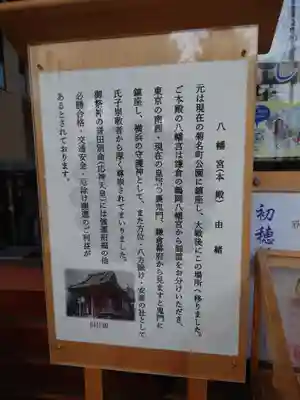 八幡宮(本殿)由緒
元は現在の菊名町公園に鎮座し、大戦後にこの場所へ移りました。
ご本殿の八幡宮は鎌倉の鶴岡八幡宮から御霊をお分けいただき、
東京の南西・現在の皇居の裏鬼門、鎌倉幕府から見ますと鬼門に
鎮座し、横浜の守護神として、また方位・八方除け・安泰の社として
氏子崇敬者から厚く尊崇されてまいりました。
御祭神の誉田別命(応神天皇)には強運招福の他
必勝合格・交通安全・厄除け開運のご利益が
あるとされております。
初穂